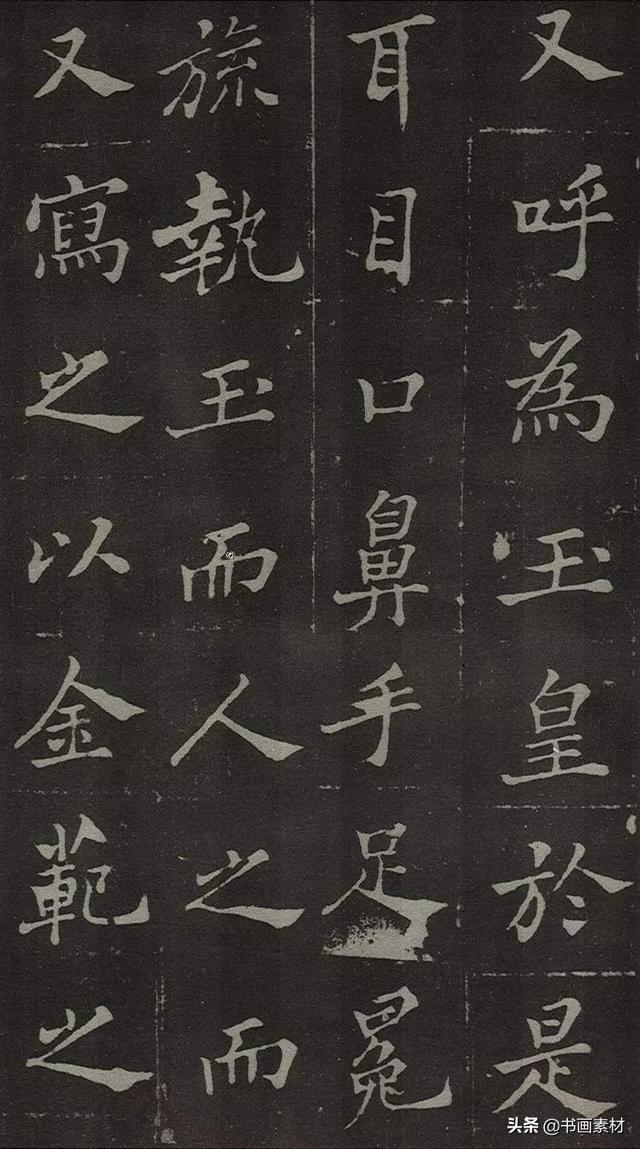 又呼為玉皇於是
耳目口鼻手足冕
旒執玉而人之而
又寫之以金範之
头条 @书画素材